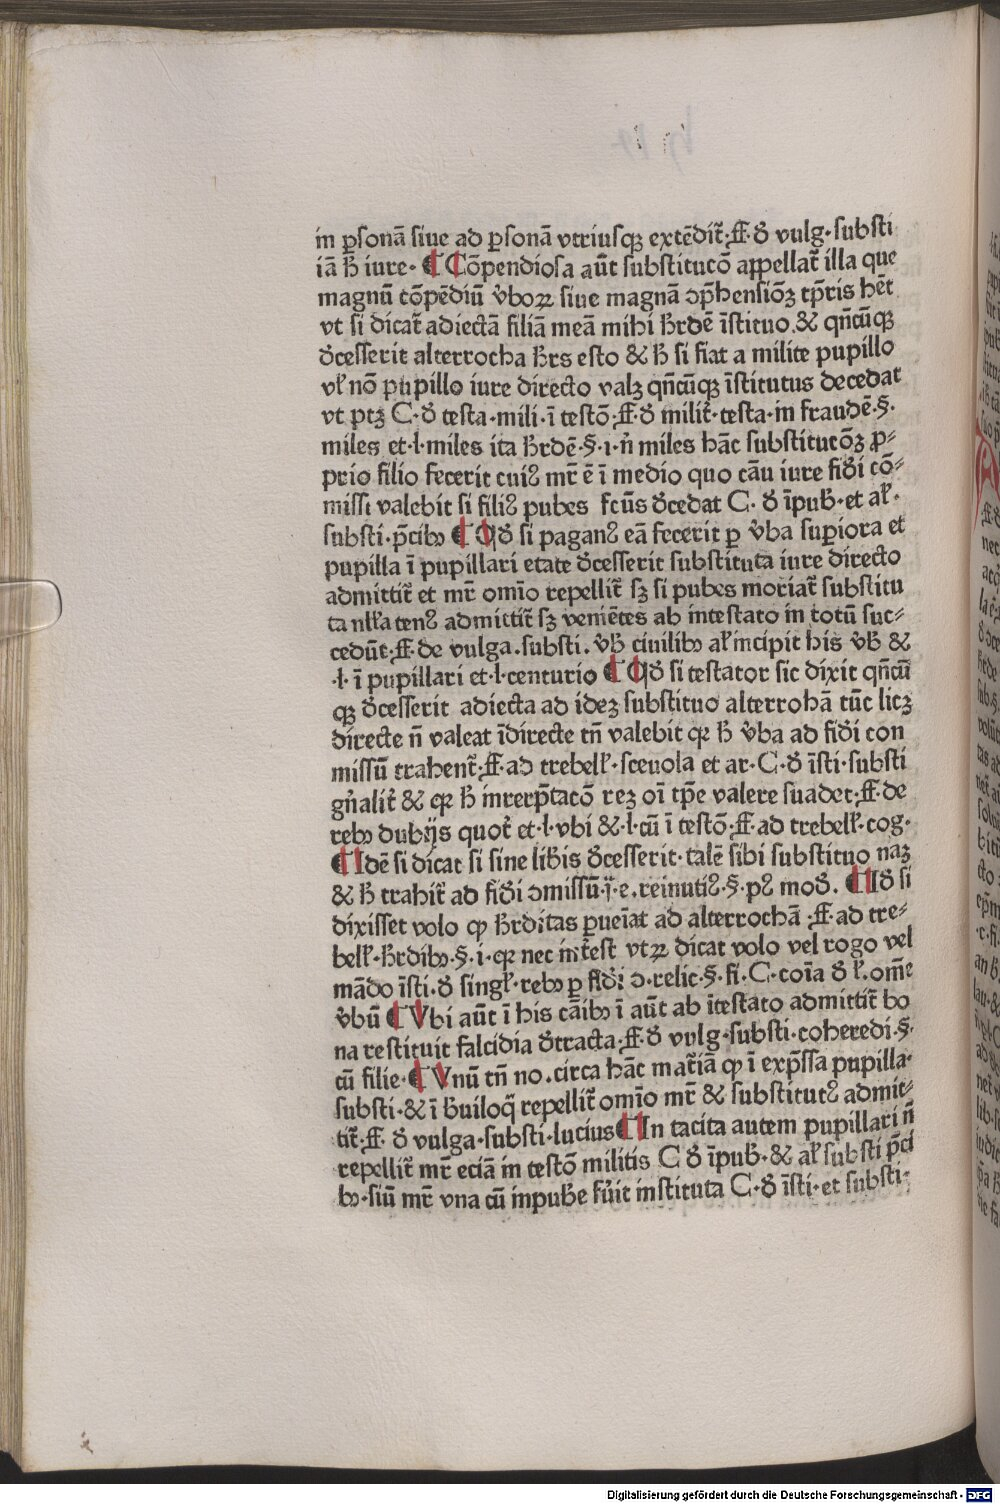 in ꝑsonã siue ad ꝑsonã vtriusqꝫ extẽdit᷑·ff·ꝺ̃ vulg·substi
iã ħ iure· ¶ Cõpendiosa aũt substitucõ appellat᷑ illa que
magnũ cõpẽdiũ v̾boꝝ siue magnã ꝯp̃hensiõꝫ tp̃ris hẽt
vt si dicat᷑ adiectã filiã meã mihi ħrdẽ ĩstituo & qñcũqꝫ
ꝺ̃cesserit alterrocha ħrs esto & ħ si fiat a milite pupillo
vl̃ nõ pupillo iure directo valꝫ qñcũqꝫ ĩstitutus decedat
vt ptꝫ C·ꝺ̃ testa·mili·ĩ testõ·ff·ꝺ̃ milit᷑·testa·in fraudẽ·§·
miles et·l·miles ita ħrdẽ·§·ı·ñ miles hãc substitucõꝫ ꝓ⸗
prio filio fecerit cui⁹ mr̃ ẽ ĩ medio quo cãu iure fiꝺ̃i cõ⸗
missi valebit si fili⁹ pubes fcũs ꝺ̃cedat C·ꝺ̃ ĩpuƀ·et al̃·
substi·p̃cib⁹ ¶ Qꝺ̃ si pagan⁹ eã fecerit ꝑ v̾ba suꝑiora et
pupilla ĩ pupillari etate ꝺ̃cesserit substituta iure directo
admittit᷑ et mr̃ omĩo repellit᷑ sꝫ si pubes moriat᷑ substitu
ta nll̃aten⁹ admittit᷑ sꝫ veniẽtes ab intestato in totũ suc⸗
cedũt·ff·de vulga·substi·v̾ƀ ciuilib⁹ al̃ incipit his vƀ &
·l·ĩ pupillari et·l·centurio ¶ Qꝺ̃ si testator sic dixit qñcũ
qꝫ ꝺ̃cesserit adiecta ad ideꝫ substituo alterrohã tũc licꝫ
directe ñ valeat ĩdirecte tñ valebit qꝛ ħ v̾ba ad fiꝺ̃i con
missũ trahent᷑·ff·ad trebell̃·sceuola et ar·C·ꝺ̃ ĩsti·substi
gñalit᷑ & qꝛ ħ inrerp̃tacõ reꝫ oĩ tp̃e valere suadet·ff·de
reb⁹ dubijs quot᷑ et·l·vbi &·l·cũ ĩ testõ·ff·ad trebell̃·cog·
¶ Idẽ si dicat si sine lib̾is ꝺ̃cesserit·talẽ sibi substituo naꝫ
& ħ trahit᷑ ad fiꝺ̃i ꝯmissũ·ff·e·reinuti⁹·§·p⁹ moꝺ̃· ¶ Iꝺ̃ si
dixisset volo ꝙ ħrditas ꝑueĩat ad alterrochã·ff·ad tre⸗
bell̃·ħrdib⁹·§·i·qꝛ nec int᷑est vtꝝ dicat volo vel rogo vel
mãdo ĩsti·ꝺ̃ singl̃·reb⁹ ꝑ fiꝺ̃i ꝯ·relic·§·fi·C·coĩa ꝺ̃ l̃·om̃e
v̾bũ ¶ Vbi aũt ĩ his cãib⁹ ĩ aũt ab ĩtestato admittit᷑ bo
na restituit falcidia ꝺ̃tracta·ff·ꝺ̃ vulg·substi·coheredi·§·
cũ filie·¶ Vnũ tñ no·circa hãc mat᷑iã ꝙ ĩ exp̃ssa pupilla·
substi·& ĩ ħuiloq̃ repellit᷑ omĩo mr̃ & substitut⁹ admit⸗
tit᷑·ff·ꝺ̃ vulga·substi·lucius ¶ In tacita autem pupillari ñ
repellit᷑ mr̃ eciã in testõ militis C ꝺ̃ ĩpuƀ·& al̃ substi p̃ci
b⁹·siũ mr̃ vna cũ inpuƀe fu̾it instituta C·ꝺ̃ ĩsti·et substi·
Digitalisierung gefördert durch die Deutsche Forschungsgemeinschaft - DFG